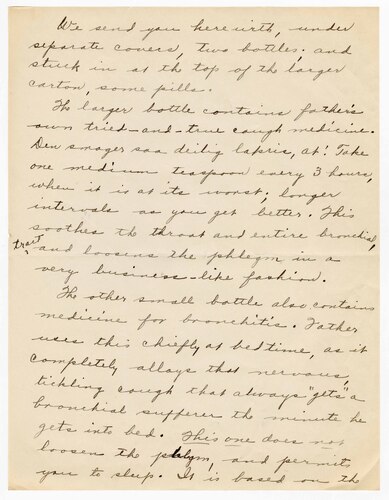 We send you herewith, under
separate covers, two bottles; and
stuck in at the top of the larger
carton, some pills.
The larger bottle contains father's
own tried-and-true cough medicine.
Den smager saa deilig lapris, at! Take
one medium teaspoon every 3 hours,
when it is at its worst; longer
intervals as you get better. This
soothes the throat and entire bronchial,
tract
and loosens the phlegm in a
very business-like fashion.
The other small bottle also contains
medicine for bronchitis. Father
uses this chiefly at bedtime, as it
completely allays that nervous,
tickling cough that always "gets" a
bronchial sufferer the minute he
gets into bed. This one does not
loosen the phlegm, and permits
you to sleep. It is based on the